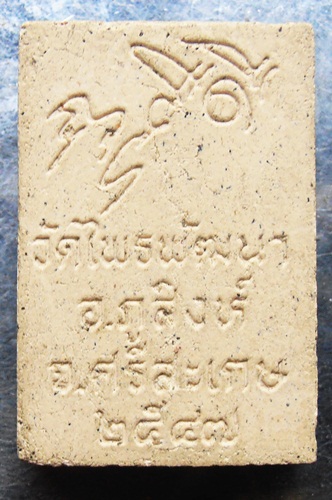 วัดไพรพัฒนา
อ.ภูสิงห์
จ.ศรีสะเกษ
๒๕๔๗